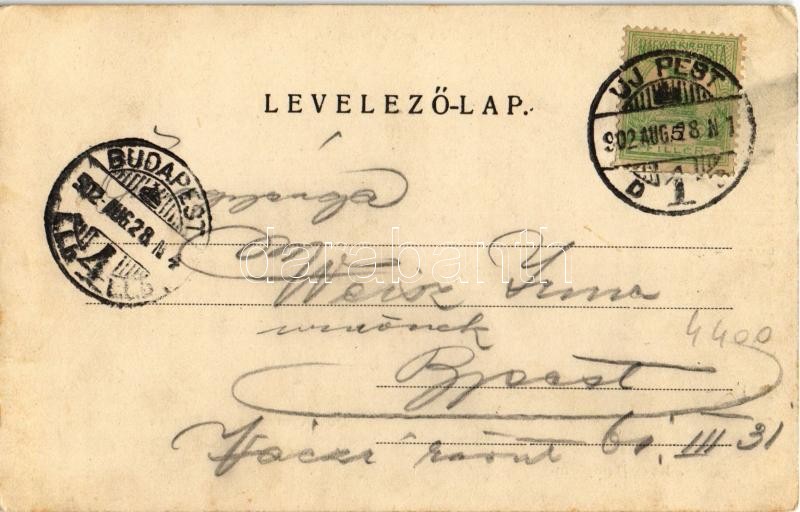 MAGYAR KIR. POSTA
UJ PEST
902 AUG 28 N 1
D 1
LEVELEZŐ-LAP.
BUDAPEST
902 AUG 28 N 4
4
Weisz Irma
urnőnek
Bpest
Váczi körút 61. III 31
4400
darabanth